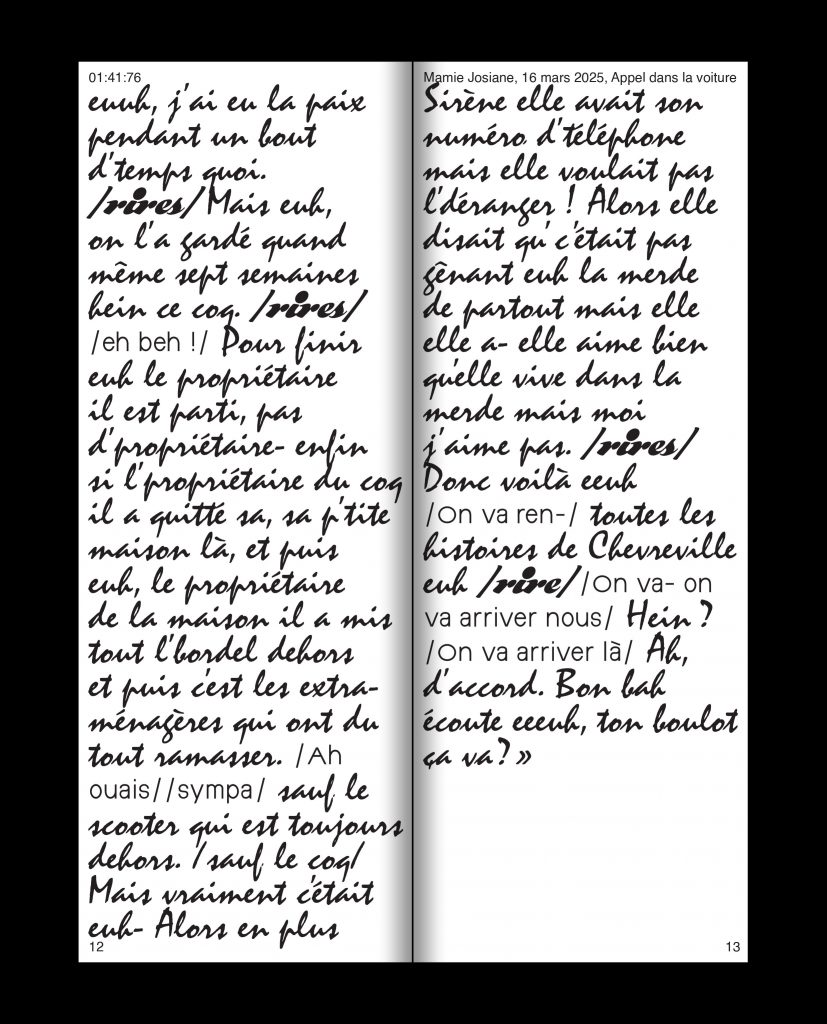 01:41:76
euuh, j'ai eu la paix
pendant un bout
d'temps quoi.
/rires/ Mais euh,
on l'a gardé quand
même sept semaines
hein ce coq. /rires/
/eh beh !/ Pour finir
euh le propriétaire
il est parti, pas
d'propriétaire- enfin
si l'propriétaire du coq
il a quitté sa, sa p'tite
maison là, et puis
euh, le propriétaire
de la maison il a mis
tout l'bordel dehors
et puis c'est les extra-
ménagères qui ont du
tout ramasser. /Ah
ouais//sympa/ sauf le
scooter qui est toujours
dehors. /sauf le coq/
Mais vraiment c'était
euh- Alors en plus
12
Mamie Josiane, 16 mars 2025, Appel dans la voiture
Sirène elle avait son
numéro d'téléphone
mais elle voulait pas
l'déranger ! Alors elle
disait qu'c'était pas
gênant euh la merde
de partout mais elle
elle a- elle aime bien
qu'elle vive dans la
merde mais moi
j'aime pas. /rires/
Donc voilà eeuh
/On va ren-/ toutes les
histoires de Chevreville
euh /rire/ /On va- on
va arriver nous/ Hein ?
/On va arriver là/ Ah,
d'accord. Bon bah
écoute eeeuh, ton boulot
ça va ? »
13